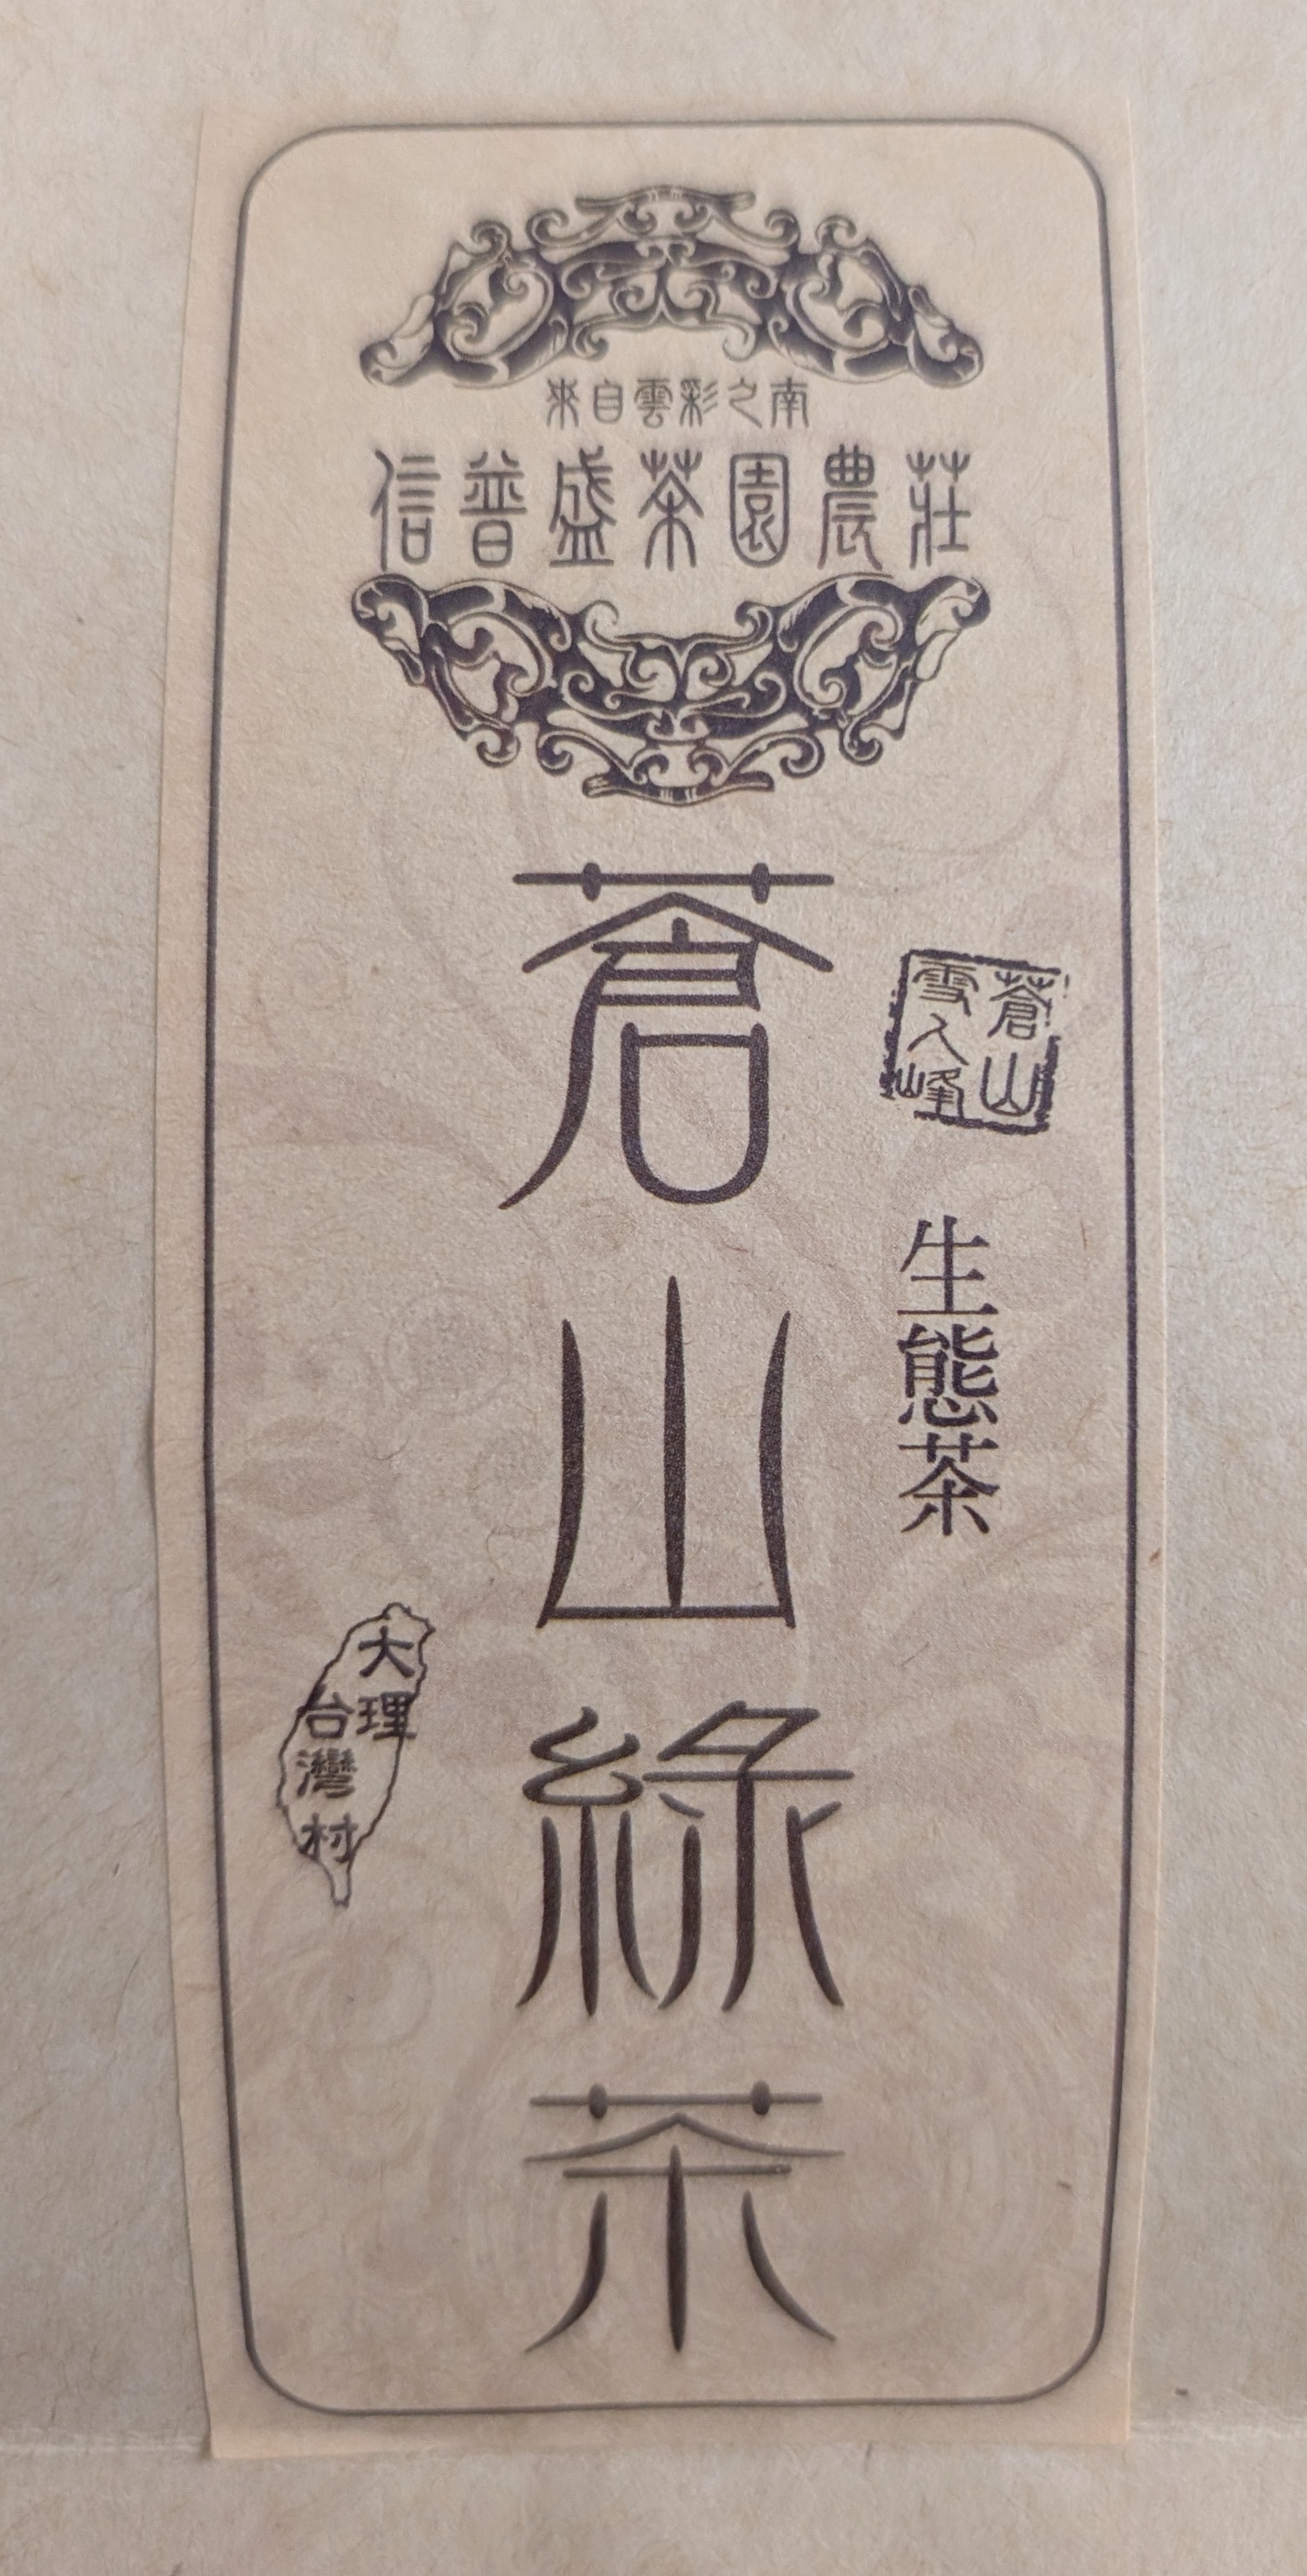 來自雲彩之南
信普盛茶園農莊
蒼山綠茶
蒼山
雪人峰
生態茶
大理
台灣村